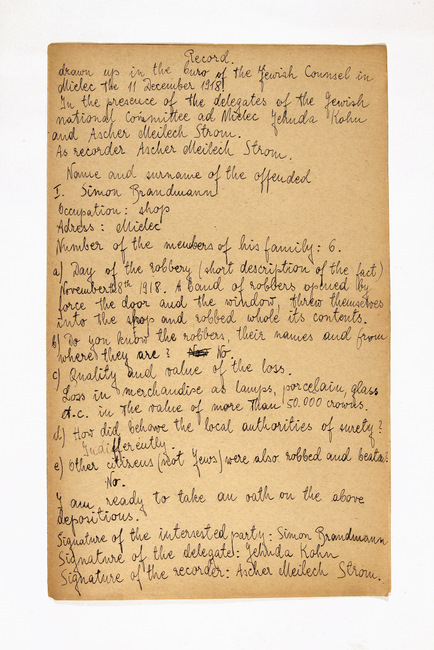 Record.
drawn up in the buro of the Jewish Counsel in
Mielec the 11 December 1918
In the presence of the delegates of the Jewish
national Committee ad Mielec Jehuda Kohn
and Ascher Meilech Strom.
As recorder Ascher Meilech Strom.
Name and surname of the offended
I. Simon Brandmann
Occupation: shop
Adress: Mielec
Number of the members of his family: 6.
a) Day of the robbery (short description of the fact)
November 8th 1918. A band of robbers opened by
force the door and the window, threw themselves
into the shop and robbed whole its contents.
b) Do you know the robbers, their names and from
where they are? No.
c) Quality and value of the loss.
Loss in merchandise as lamps, porcelain, glass
et.c. in the value of more than 50.000 crowns.
d) How did behave the local authorities of surety?
Indifferently.
e) Other citizens (not Jews) were also robbed and beaten?
No.
I am ready to take an oath on the above
depositions.
Signature of the interested party: Simon Brandmann
Signature of the delegate: Jehuda Kohn
Signature of the recorder: Ascher Meilech Strom.